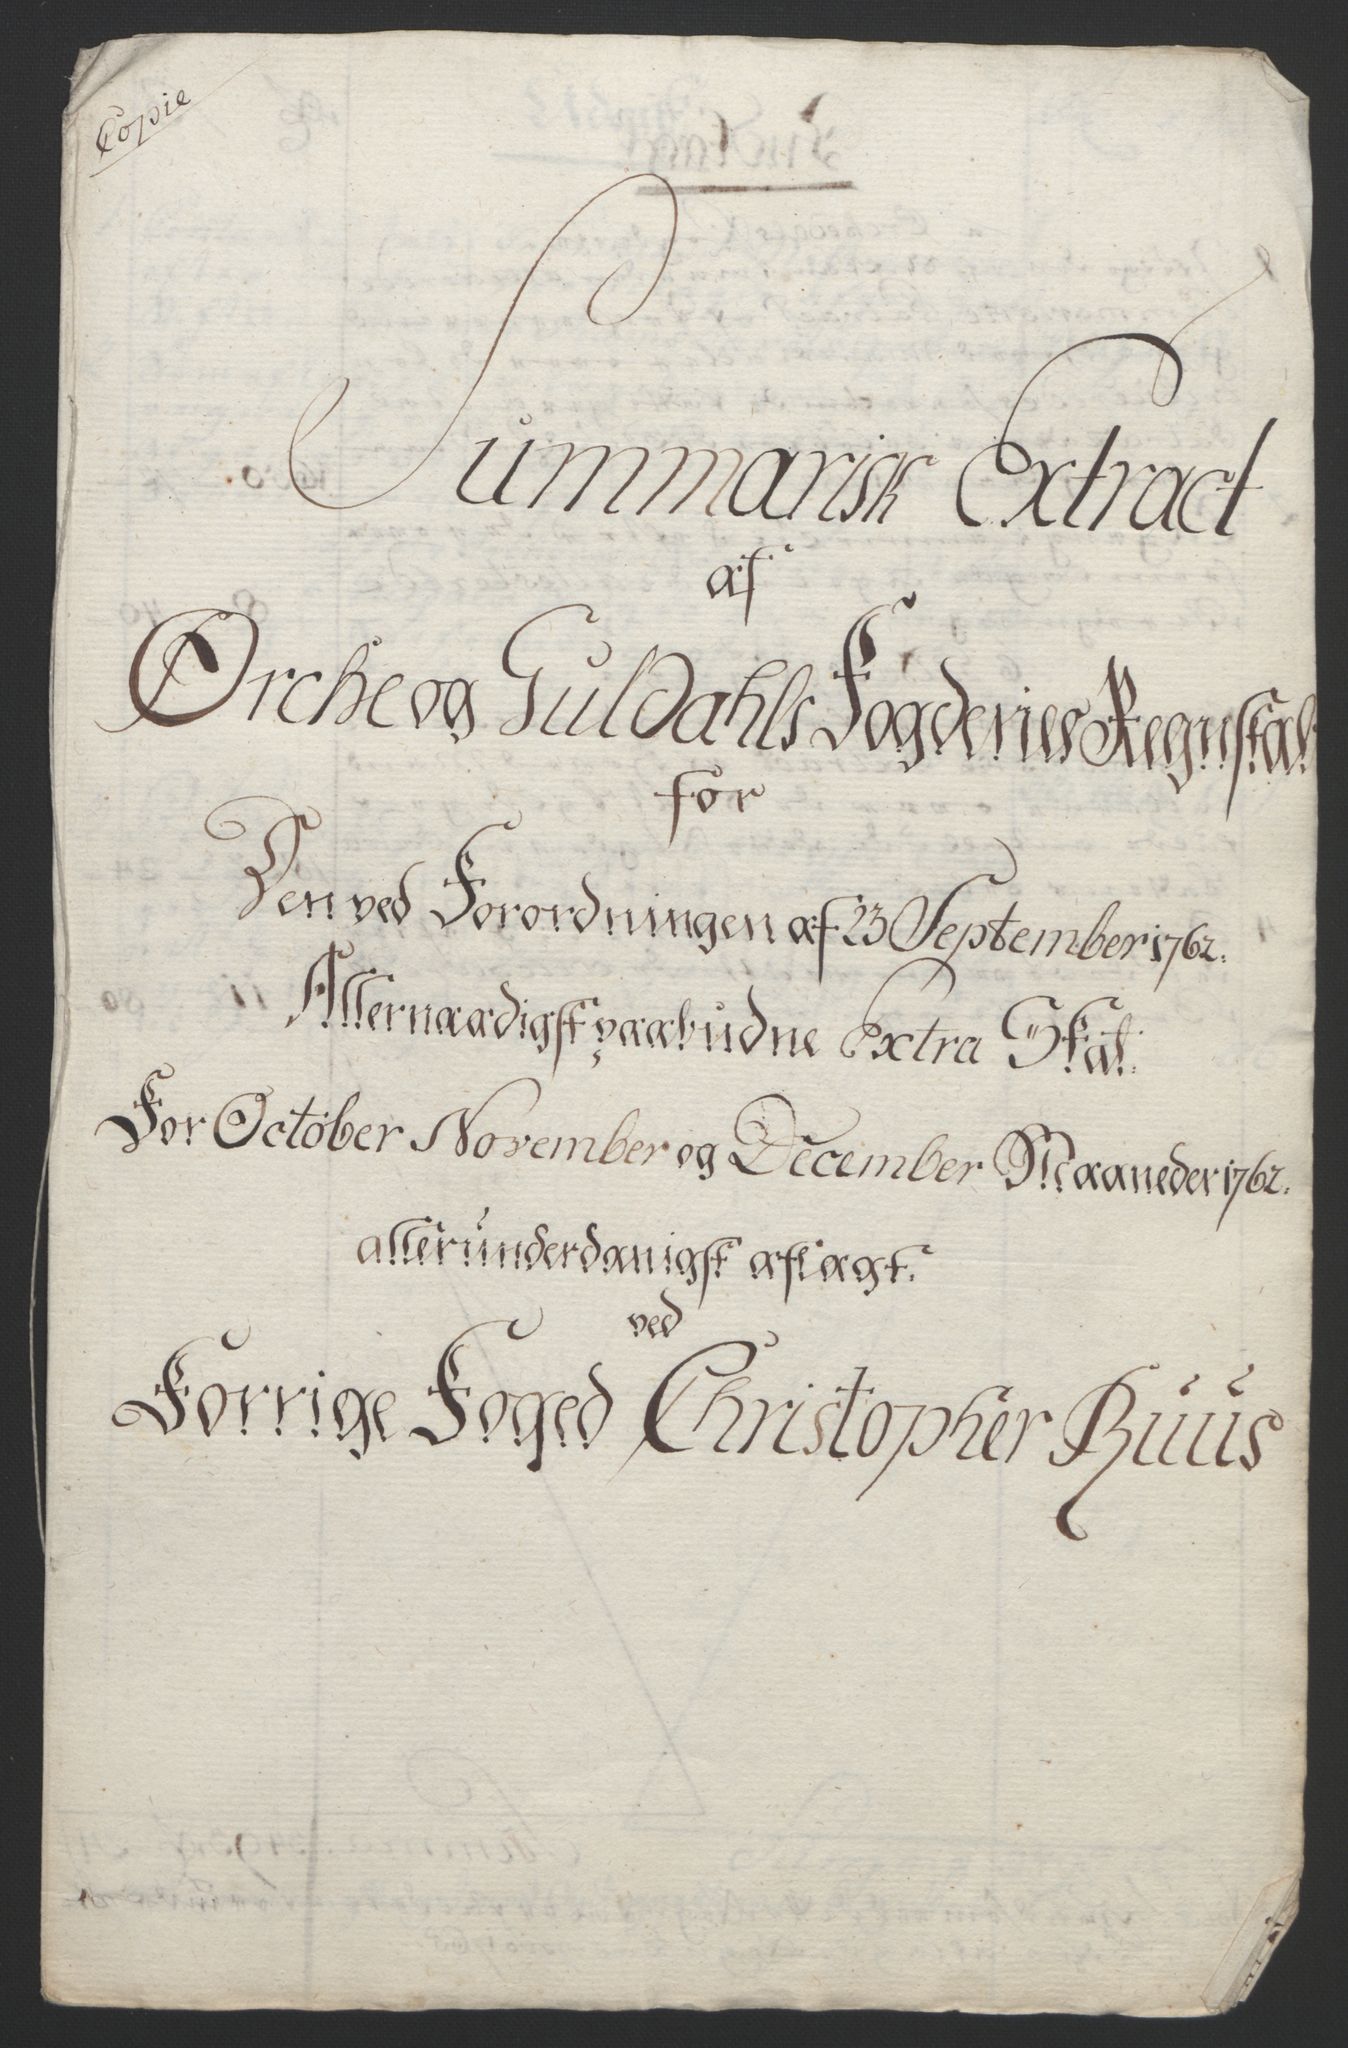 Copie
Summarisk Extract
af
Orche og Guldahls Fogderies Regnskab
for
Den ved Forordningen af 23 September 1762.
Allernaadigst paabudne Extra Skat.
For October November og December Maaneder 1762.
alleründerdanigst aflagt.
ved
Forrige Foged Christopher Rüüs